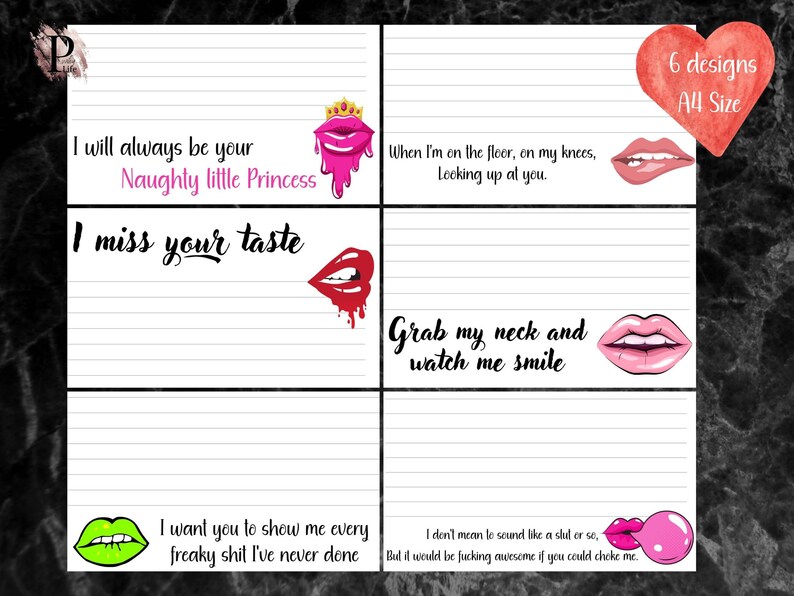 P
Life
6 designs
A4 Size
I will always be your
Naughty little Princess
When I'm on the floor, on my knees,
Looking up at you.
I miss your taste
Grab my neck and
watch me smile
I want you to show me every
freaky shit I've never done
I don't mean to sound like a slut or so,
But it would be fucking awesome if you could choke me.